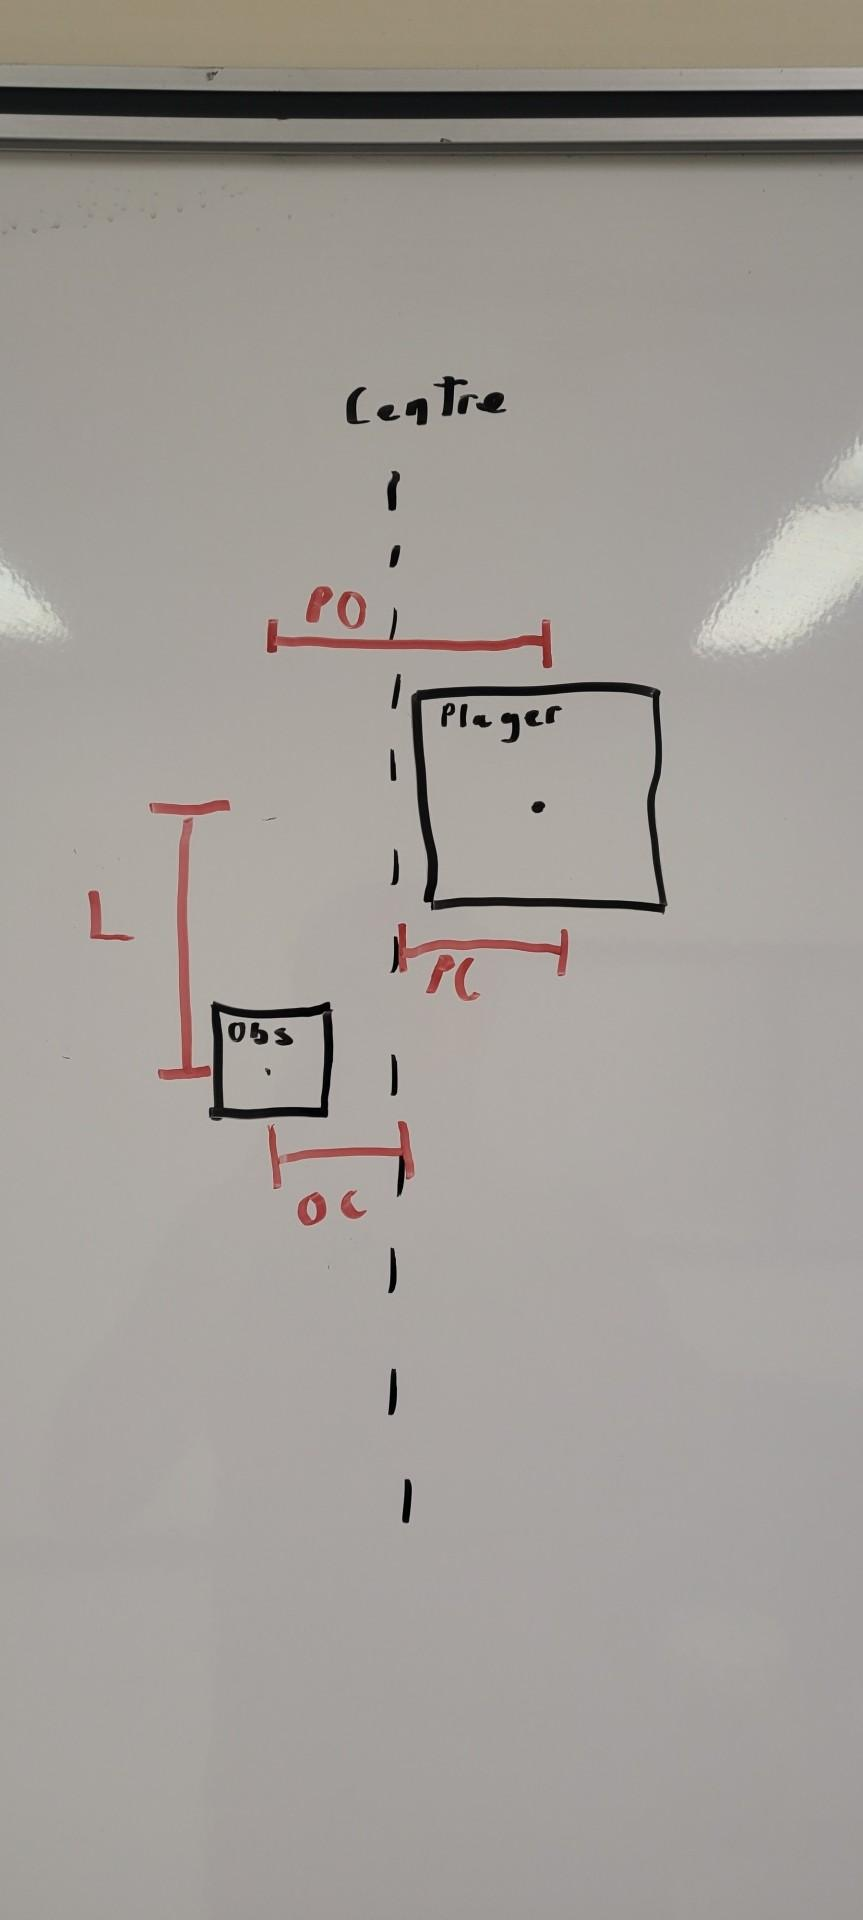 Centre
PO
Player
L
PC
Obs
OC